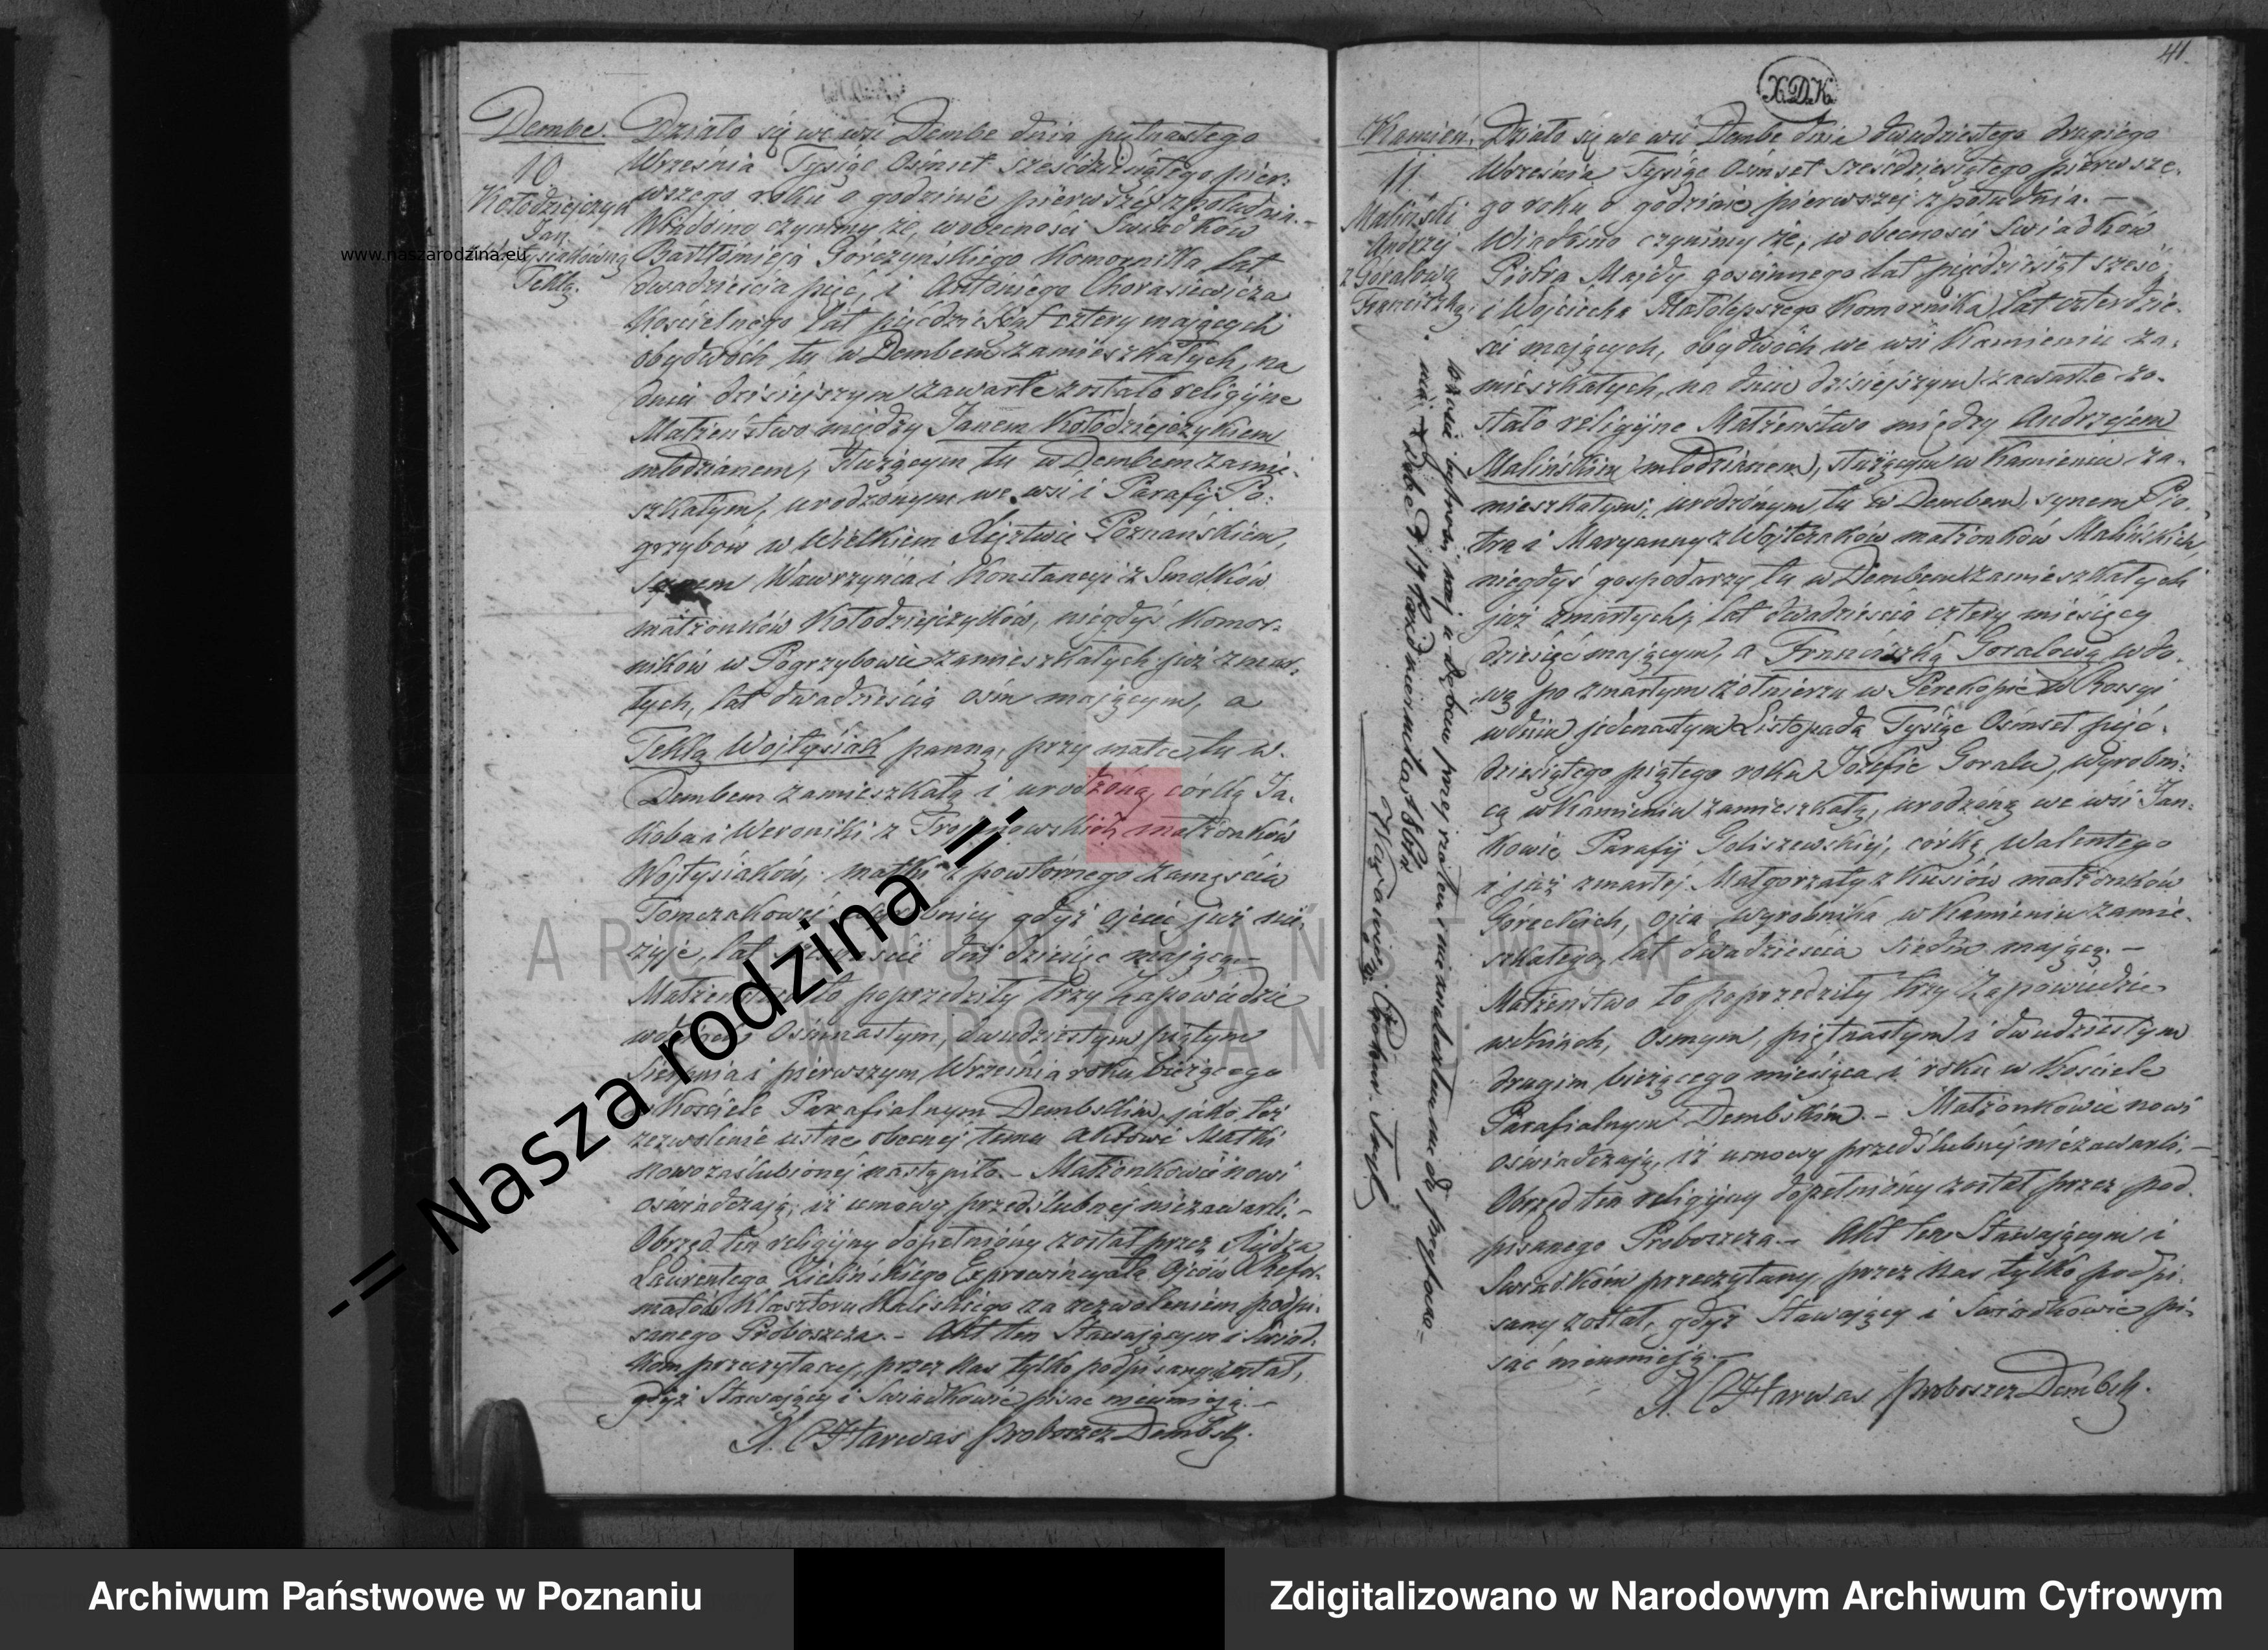 Dembe.
10
Kołodziejczyk
Jan
Tekla.
Działo się we wsi Dembe dnia piętnastego
Września Tysiąc Ośmset sześćdziesiątego pier-
wszego roku o godzinie pierwszej z południa. —
Wiadomo czynimy że w obecności Swiadków
Bartłomieja Górczyńskiego Komornika lat
dwadzieścia pięć, i Antoniego Chorasiewicza
Kościelnego lat pięćdziesiąt cztery mających
obydwóch tu w Dembem zamieszkałych, na
dniu dzisiejszym zawarte zostało religijne
Małżeństwo między Janem Kołodziejczykiem
młodzianem, służącym tu w Dembem zamie-
szkałym, urodzonym we wsi i Parafii Po-
grzybow w Wielkiem Xięztwie Poznańskiem,
synem Wawrzyńca i Konstancyi z Smolków
małżonków Kołodziejczyków, niegdyś Komor-
ników w Pogrzybowie zamieszkałych już zmar-
łych, lat dwadzieścia ośm mającym, a
Teklą Wojtysiak panną, przy matce tu w
Dembem zamieszkałą i urodzoną, córką Ja-
koba i Weroniki z Trojanowskich małżonków
Wojtysiaków, matki z powtórnego zamęścia
Tomczakowej wyrobnicy gdyż ojciec już nie
żyje, lat dni dziesięć mającą. —
Małżeństwo to poprzedziły trzy Zapowiedzie
w dniach Ośmnastym, dwudziestym piątym
Sierpnia i pierwszym Września roku bieżącego
w Kościele Parafialnym Dembskim, jako też
zezwolenie ustne obecnej temu aktowi Matki
nowozaślubionej nastąpiło. — Małżonkowie nowi
oświadczają, iż umowy przedślubnej niezawarli. —
Obrzęd ten religijny dopełniony został przez Xiędza
Laurentego Zielińskiego Exprowincyała Ojców Xrefor-
matów Klasztoru Kaliskiego za zezwoleniem podpi-
sanego Proboszcza. — Akt ten Stawającym i Świad-
kom przeczytany, przez Nas tylko podpisany został,
gdyż Stawający i Swiadkowie pisac nieumieją. —
X. Harwas Proboszcz Dembsk.
41
X.D.K.
Kamień.
11.
Maliński
Andrzej
z Goralową
Franciszką.
Działo się we wsi Dembe dnia dwudziestego drugiego
Września Tysiąc Ośmset sześćdziesiątego pierwsze-
go roku o godzinie pierwszej z południa. —
Wiadomo czynimy że, w obecności Swiadków
Piotra Majdy gościnnego lat pięćdziesiąt sześć,
i Wojciecha Małolepszego Komornika lat czterdzie-
ści mających, obydwóch we wsi Kamieniu za-
mieszkałych, na dniu dzisiejszym zawarte zo-
stało religijne Małżeństwo między Andrzejem
Malińskim młodzianem, służącym w Kamieniu za-
mieszkałym, urodzonym tu w Dembem, synem Pio-
tra i Maryanny z Wojtczaków małżonków Malińskich,
niegdyś gospodarzy tu w Dembem zamieszkałych
już zmarłych, lat dwadzieścia cztery miesięcy
dziesięć mającym, a Franciszką Goralową wdo-
wą po zmarłym żołnierzu w Perekopie w Rossyi
w dniu jedenastym Listopada Tysiąc Ośmset pięć-
dziesiątego piątego roku Józefie Goralu, wyrobni-
cą w Kamieniu zamieszkałą, urodzoną we wsi Jan-
kowie Parafii Goliszewskiej, córką Walentego
i już zmarłej Małgorzaty z Kusiów małżonków
Góreckich, ojca wyrobnika w Kamieniu zamie-
szkałego, lat dwadzieścia siedm mającą. —
Małżeństwo to poprzedziły trzy Zapowiedzie
w dniach, Osmym, piętnastym i dwudziestym
drugim bieżącego miesiąca i roku w Kościele
Parafialnym Dembskim. — Małżonkowie nowi
oświadczają, iż umowy przedślubnej niezawarli. —
Obrzęd ten religijny dopełniony został przez pod-
pisanego Proboszcza. — Akt ten Stawającym i
Swiadkom przeczytany, przez Nas tylko podpi-
sany został, gdyż Stawający i Swiadkowie pi-
sać nieumieją. —
X. Harwas Proboszcz Dembsk.
www.naszarodzina.eu
-= Nasza rodzina =-
ARCHIWUM PAŃSTWOWE
W POZNANIU
Archiwum Państwowe w Poznaniu
Zdigitalizowano w Narodowym Archiwum Cyfrowym